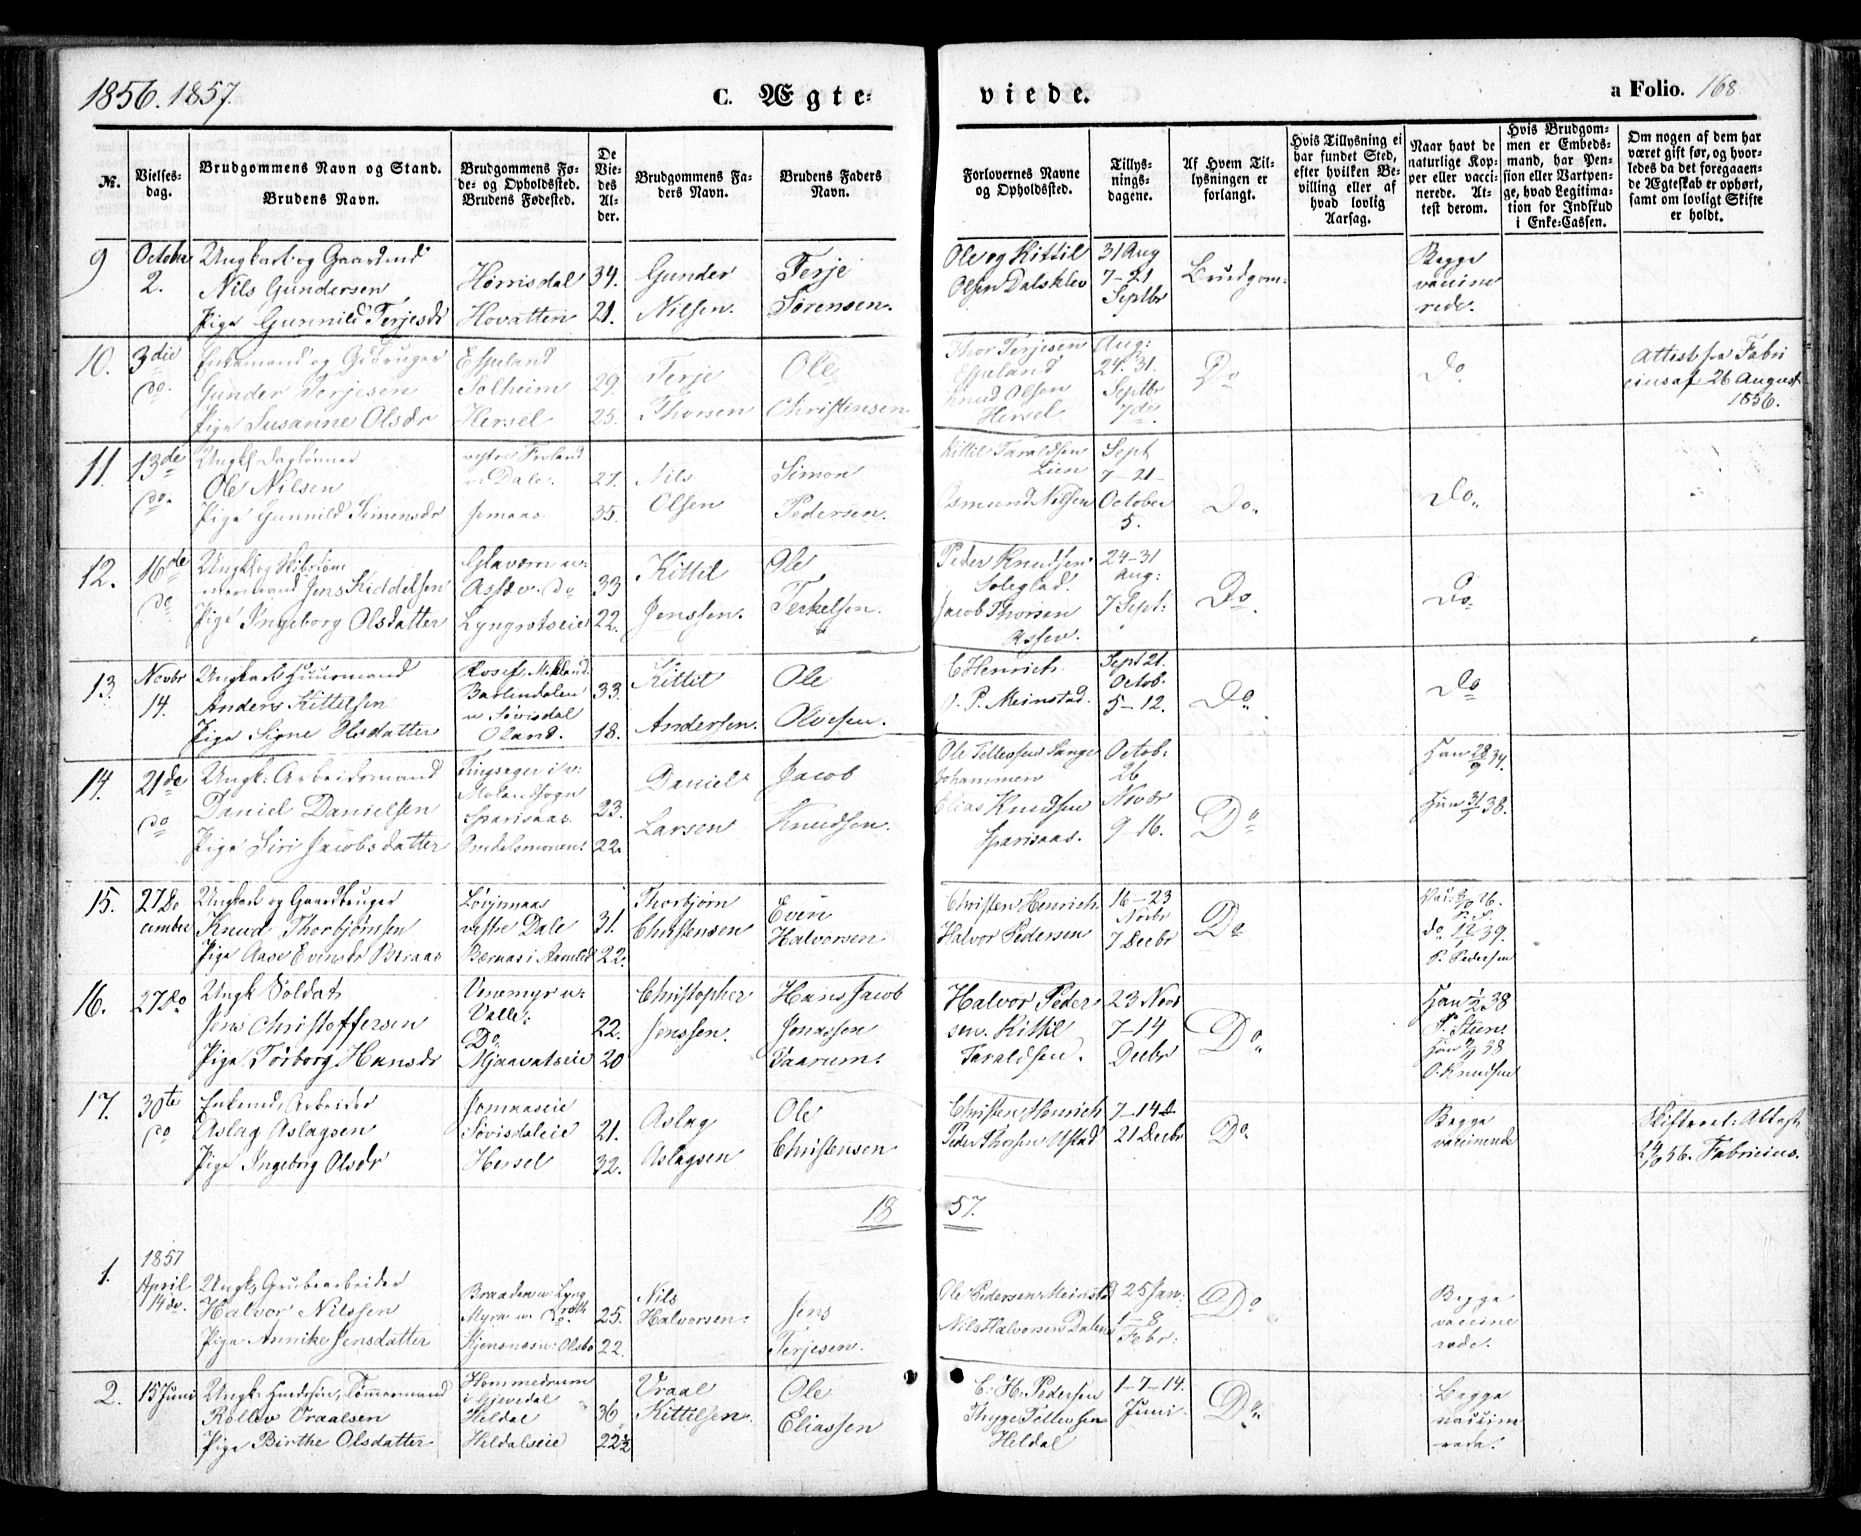 1856. 1857.
C. Ægte= viede.
a Folio. 168
№.
Vielses-dag.
Brudgommens Navn og Stand.
Brudens Navn.
Brudgommens Fø-
de- og Opholdssted.
Brudens Fødested.
De Vie-des Al-der.
Brudgommens Fa-
ders Navn.
Brudens Faders
Navn.
Forlovernes Navne
og Opholdssted.
Tillys-
nings-
dagene.
Af Hvem Til-
lysningen er
forlangt.
Hvis Tillysning ei
har fundet Sted,
efter hvilken Be-
villing eller af
hvad lovlig
Aarsag.
Naar havt de
naturlige Kop-
per eller vacci-
nerede. At-
test derom.
Hvis Brudgom-
men er Embeds-
mand, har Pen-
sion eller Vartpen-
ge, hvad Legitima-
tion for Indskud
i Enke-Cassen.
Om nogen af dem har
været gift før, og hvor-
ledes da det foregaaen-
de Ægteskab er ophørt,
samt om lovligt Skifte
er holdt.
9 October 2.
Ungkarl og Gaardmd
Nils Gundersen
Pige Gunnild Terjesdr
Hørrisdal
Hovatten
34.
21.
Gunder
Nilsen.
Terje
Sørensen.
Ole og Kittil
Olsen Dalsklev
31 Aug
7-21
Septbr
Brudgom:
Begge
vaccine
rede.
10. 3die do.
Enkemand og Gbruger
Gunder Terjesen
Pige Susanne Olsdr
Espeland
Solheim
Hersel
29.
25.
Terje
Thorsen
Ole
Christensen
Thor Terjesen
Espeland
Knud Olsen
Hersel
Aug:
24. 31.
Septbr
7de.
Do
Do
Attest fra Fabri
cius af 26 August
1856.
11. 13de do.
Ungk Daglønner
Ole Nilsen
Pige Gunnild Simensdr
vestre Froland
v: Dale.
Jomaas
27.
35.
Nils
Olsen
Simon
Pedersen.
Kittil Taraldsen
Lien
Osmund Nilsen
Sept
7-21-
October
5.
Do.
Do.
12. 16de do
Jens Kiddelsen
Pige Ingeborg Olsdatter
Assev. do
Lyngrotseie
33
22.
Kittil
Jenssen.
Ole
Terkelsen.
Peder Knudsen
Soleglad.
Jacob Thorsen
Assev.
24-31
Aug:
7 Sept:
Do.
Do.
13 Novbr 14.
Ungkarl Huusmand
Anders Kittelsen
Pige Signe Olsdatter
v Søvisdal
Oland.
33.
18.
Kittil
Andersen.
Ole
Olvesen.
C Henrich.
O. P. Meinstad.
Sept 21.
Octob.
5-12.
Do.
Do
14. 21de do
Ungk: Arbeidsmand
Daniel Danielsen
Pige Siri Jacobsdatter
Molandsogn
Sparisaas
23.
22.
Daniel
Larsen
Jacob
Knudsen.
Ole Tellessen Lange
Johammen
Elias Knudsen
Sparisaas.
Octob:
26
Novbr
9-16.
Do
Han 28/9 34.
Hun 31/5 38.
15. 27 De cember
Ungkarl og Gaardbruger
Knud Thorbjørnsen
Pige Aase Evensdr Beraas
Løvjnnaas
vestre Dale
Beraas i Aamlid
31.
22.
Thorbjørn
Christensen
Even
Halvorsen
Christen Henrich
Halvor Pedersen
16-23
Novbr
7 Decbr
Do
P. Pedersen
16. 27 do
Ungk Soldat
Jens Christoffersen
Pige Torborg Hansdr
Venemyr v:
Valle.
Do
Mjaavatseie
22.
20
Christopher
Jenssen.
Hans Jacob
Jonassen
Taarum.
Halvor Peder
sen. Kittil
Taraldsen.
23 Novr
7-14
Decbr
Do.
P. Steen
O. Knudsen
17. 30te do
Enkemd, Arbeider
Aslag Aslagsen
Pige Ingeborg Olsdr
Jomaaseie
Søvisdaleie
Hersel
21.
32.
Aslag
Aslagsen
Ole
Christensen
Christen Henrich
Peder Thorsen Ustad
7-14
21 Decbr
Do.
Begge
vaccinerede
Skifteret: Attest
56. Fabricius.
18 57.
1. 1857 April 14de.
Ungk, Grubearbeider
Halvor Nilssen
Pige Annike Jensdatter
Braaden v: Lyng
Myra v: Do roth
Kjensnæs v: Olsbo
25.
22.
Nils
Halvorsen.
Jens
Terjesen.
Ole Pedersen Meinstad
Nils Halvorsen Dalen
25 Jan:
1-8
Febr:
Do
Begge
vaccine
rede.
2. 15 Juni
Ungk: Tømmermand
Rollev Vraalsen
Pige Birthe Olsdatter
Hommedrum
i Gjevedal
Heldal
Heldalseie
36
22½
Vraal
Kittilsen.
Ole
Eliassen
C: H: Pedersen
Thyge Tellessen
Heldal
1-7-14.
Juni.
Do.
Begge
vaccine
rede.